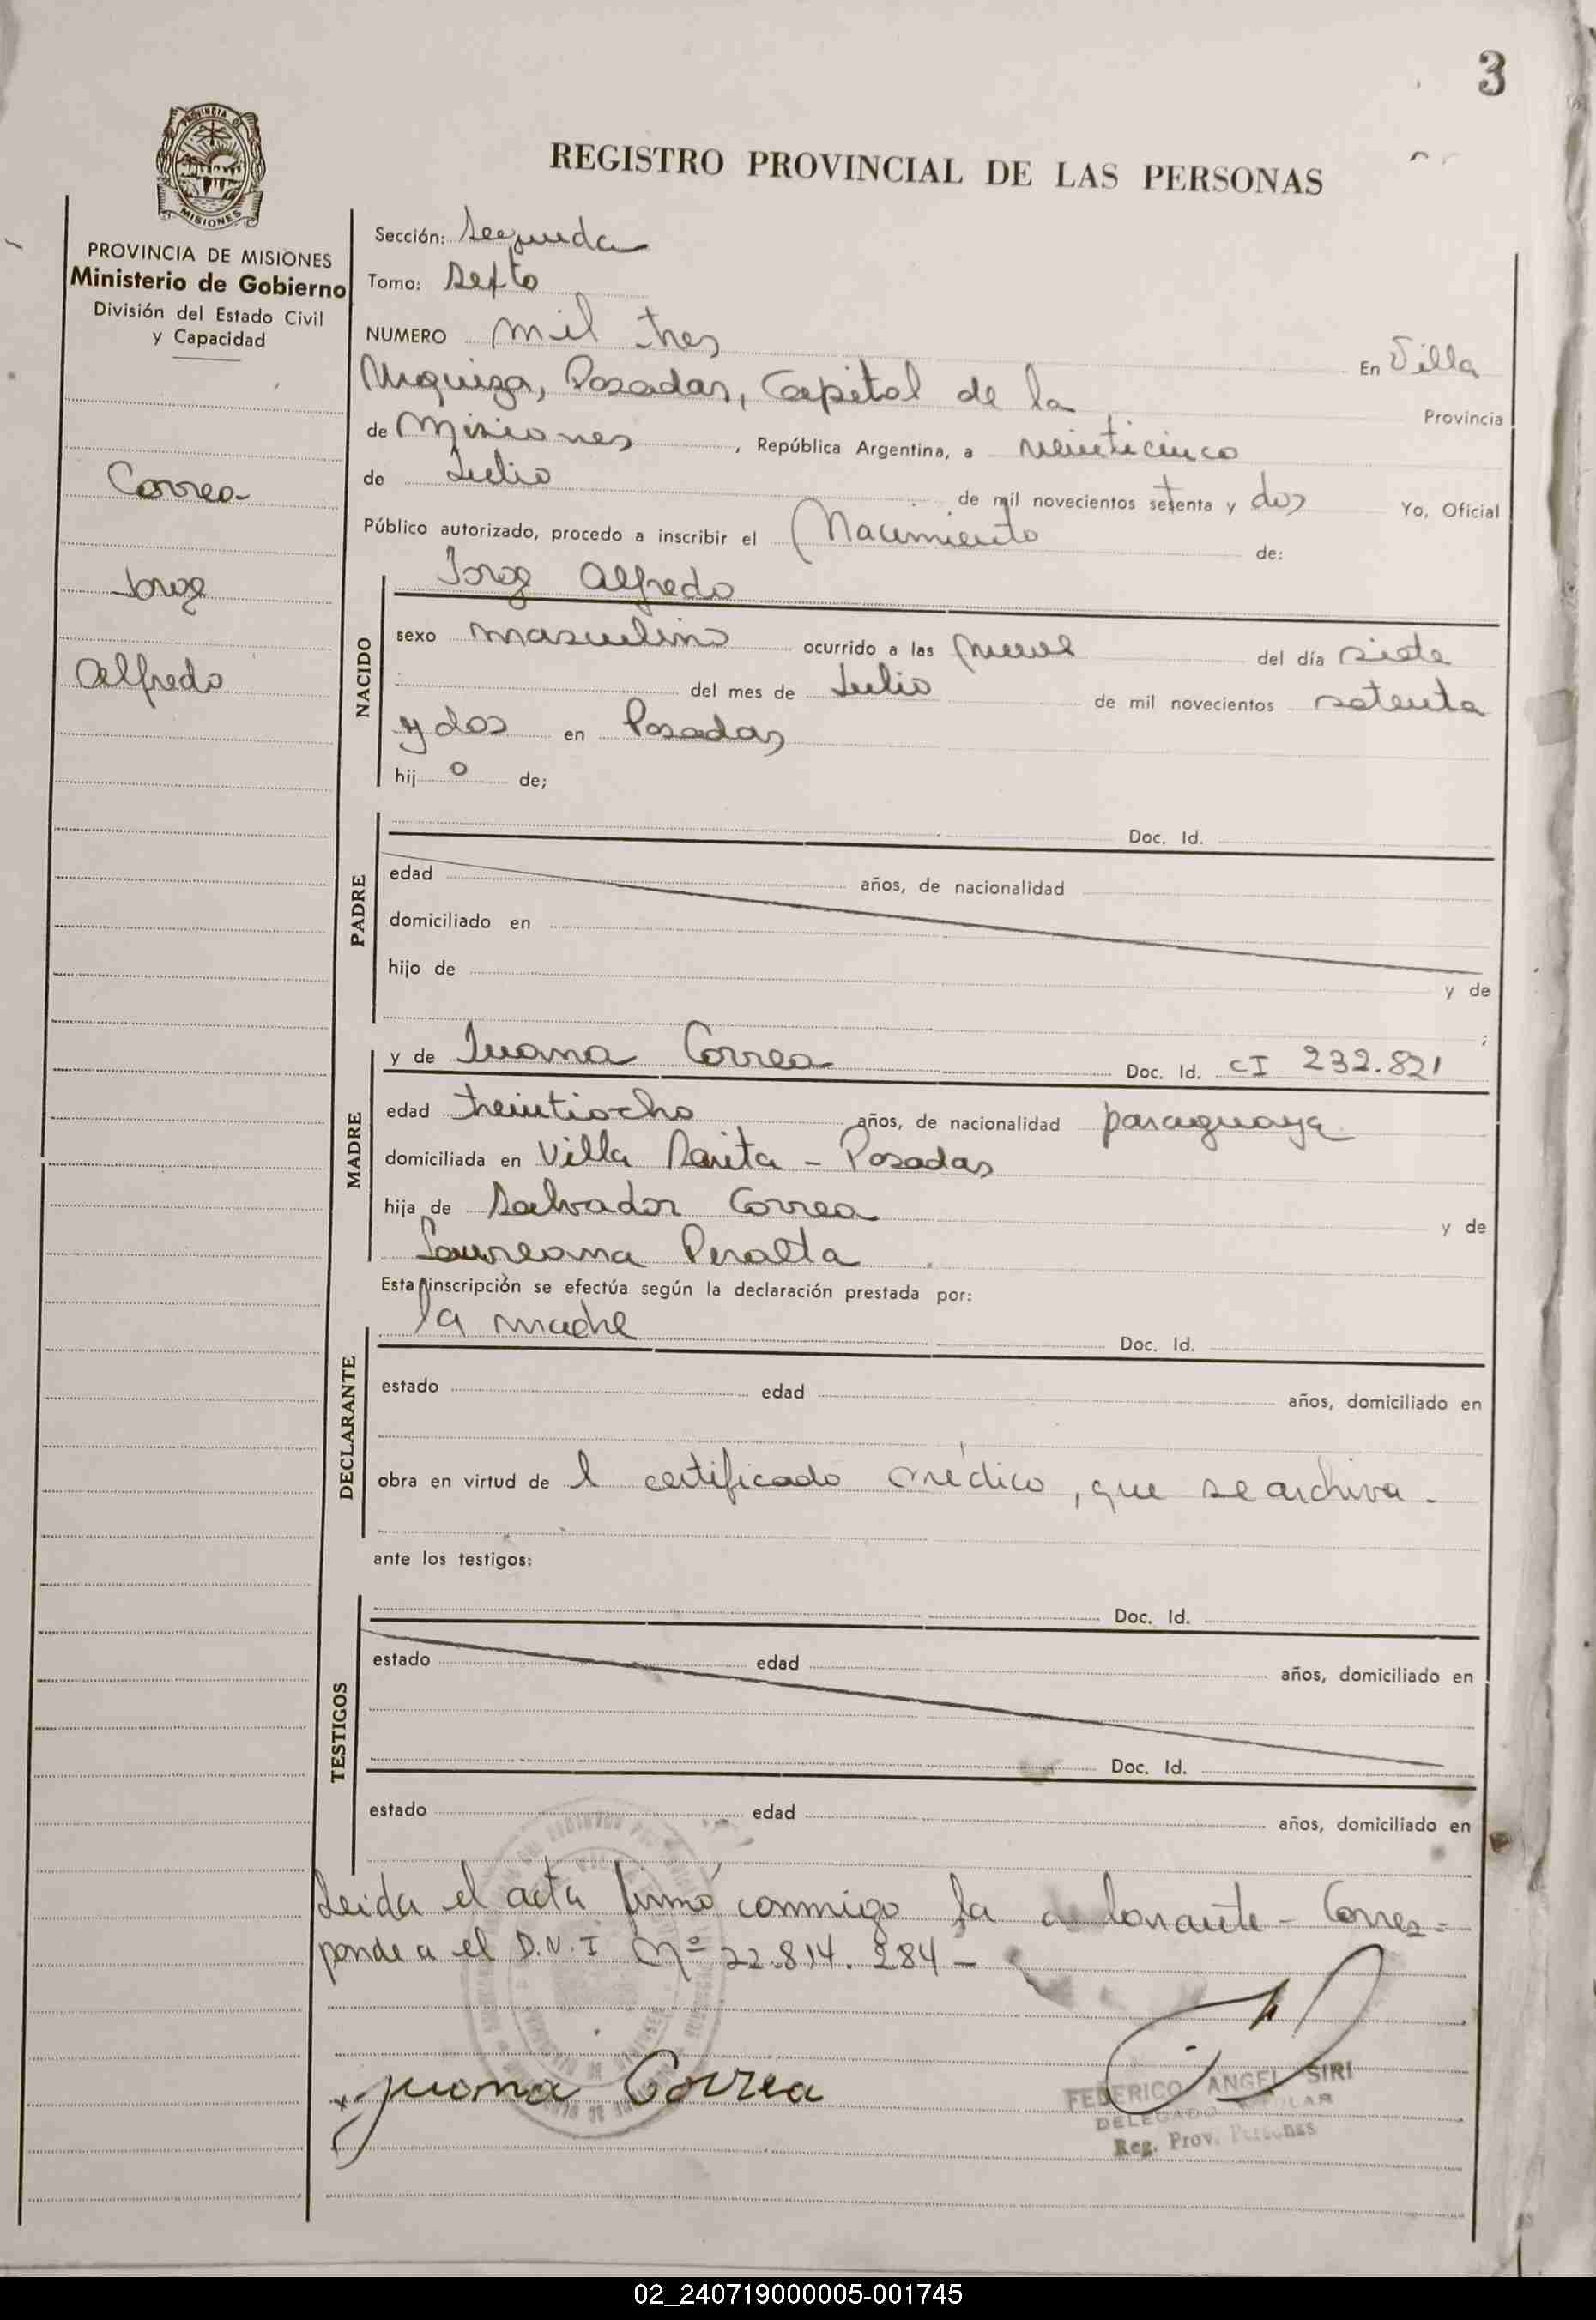 3
PROVINCIA DE
MISIONES
REGISTRO PROVINCIAL DE LAS PERSONAS
PROVINCIA DE MISIONES
Ministerio de Gobierno
División del Estado Civil
y Capacidad
Correa
Jorge
Alfredo
Sección: Segunda
Tomo: Sexto
NUMERO mil tres
En Villa
Urquiza, Posadas, Capital de la Provincia
de Misiones, República Argentina, a veinticinco
de Julio de mil novecientos setenta y dos Yo, Oficial
Público autorizado, procedo a inscribir el Nacimiento de:
NACIDO
Jorge Alfredo
sexo masculino ocurrido a las nueve del día siete
del mes de Julio de mil novecientos setenta
y dos en Posadas
hij o de;
PADRE
Doc. Id.
edad años, de nacionalidad
domiciliado en
hijo de y de
;
MADRE
y de Juana Correa Doc. Id. CI 232.821
edad treintiocho años, de nacionalidad paraguaya
domiciliada en Villa Sarita - Posadas
hija de Salvador Correa y de
Laureana Peralta
Esta inscripción se efectúa según la declaración prestada por:
DECLARANTE
la madre Doc. Id.
estado edad años, domiciliado en
obra en virtud de l certificado médico, que se archiva.
ante los testigos:
TESTIGOS
Doc. Id.
estado edad años, domiciliado en
Doc. Id.
estado edad años, domiciliado en
Leida el acta firmó conmigo la declarante - Corres=
ponde a el D.N.I Nº 22.814.284 -
x Juana Correa
FEDERICO ANGEL SIRI
DELEGADO TITULAR
Reg. Prov. Personas
02_240719000005-001745